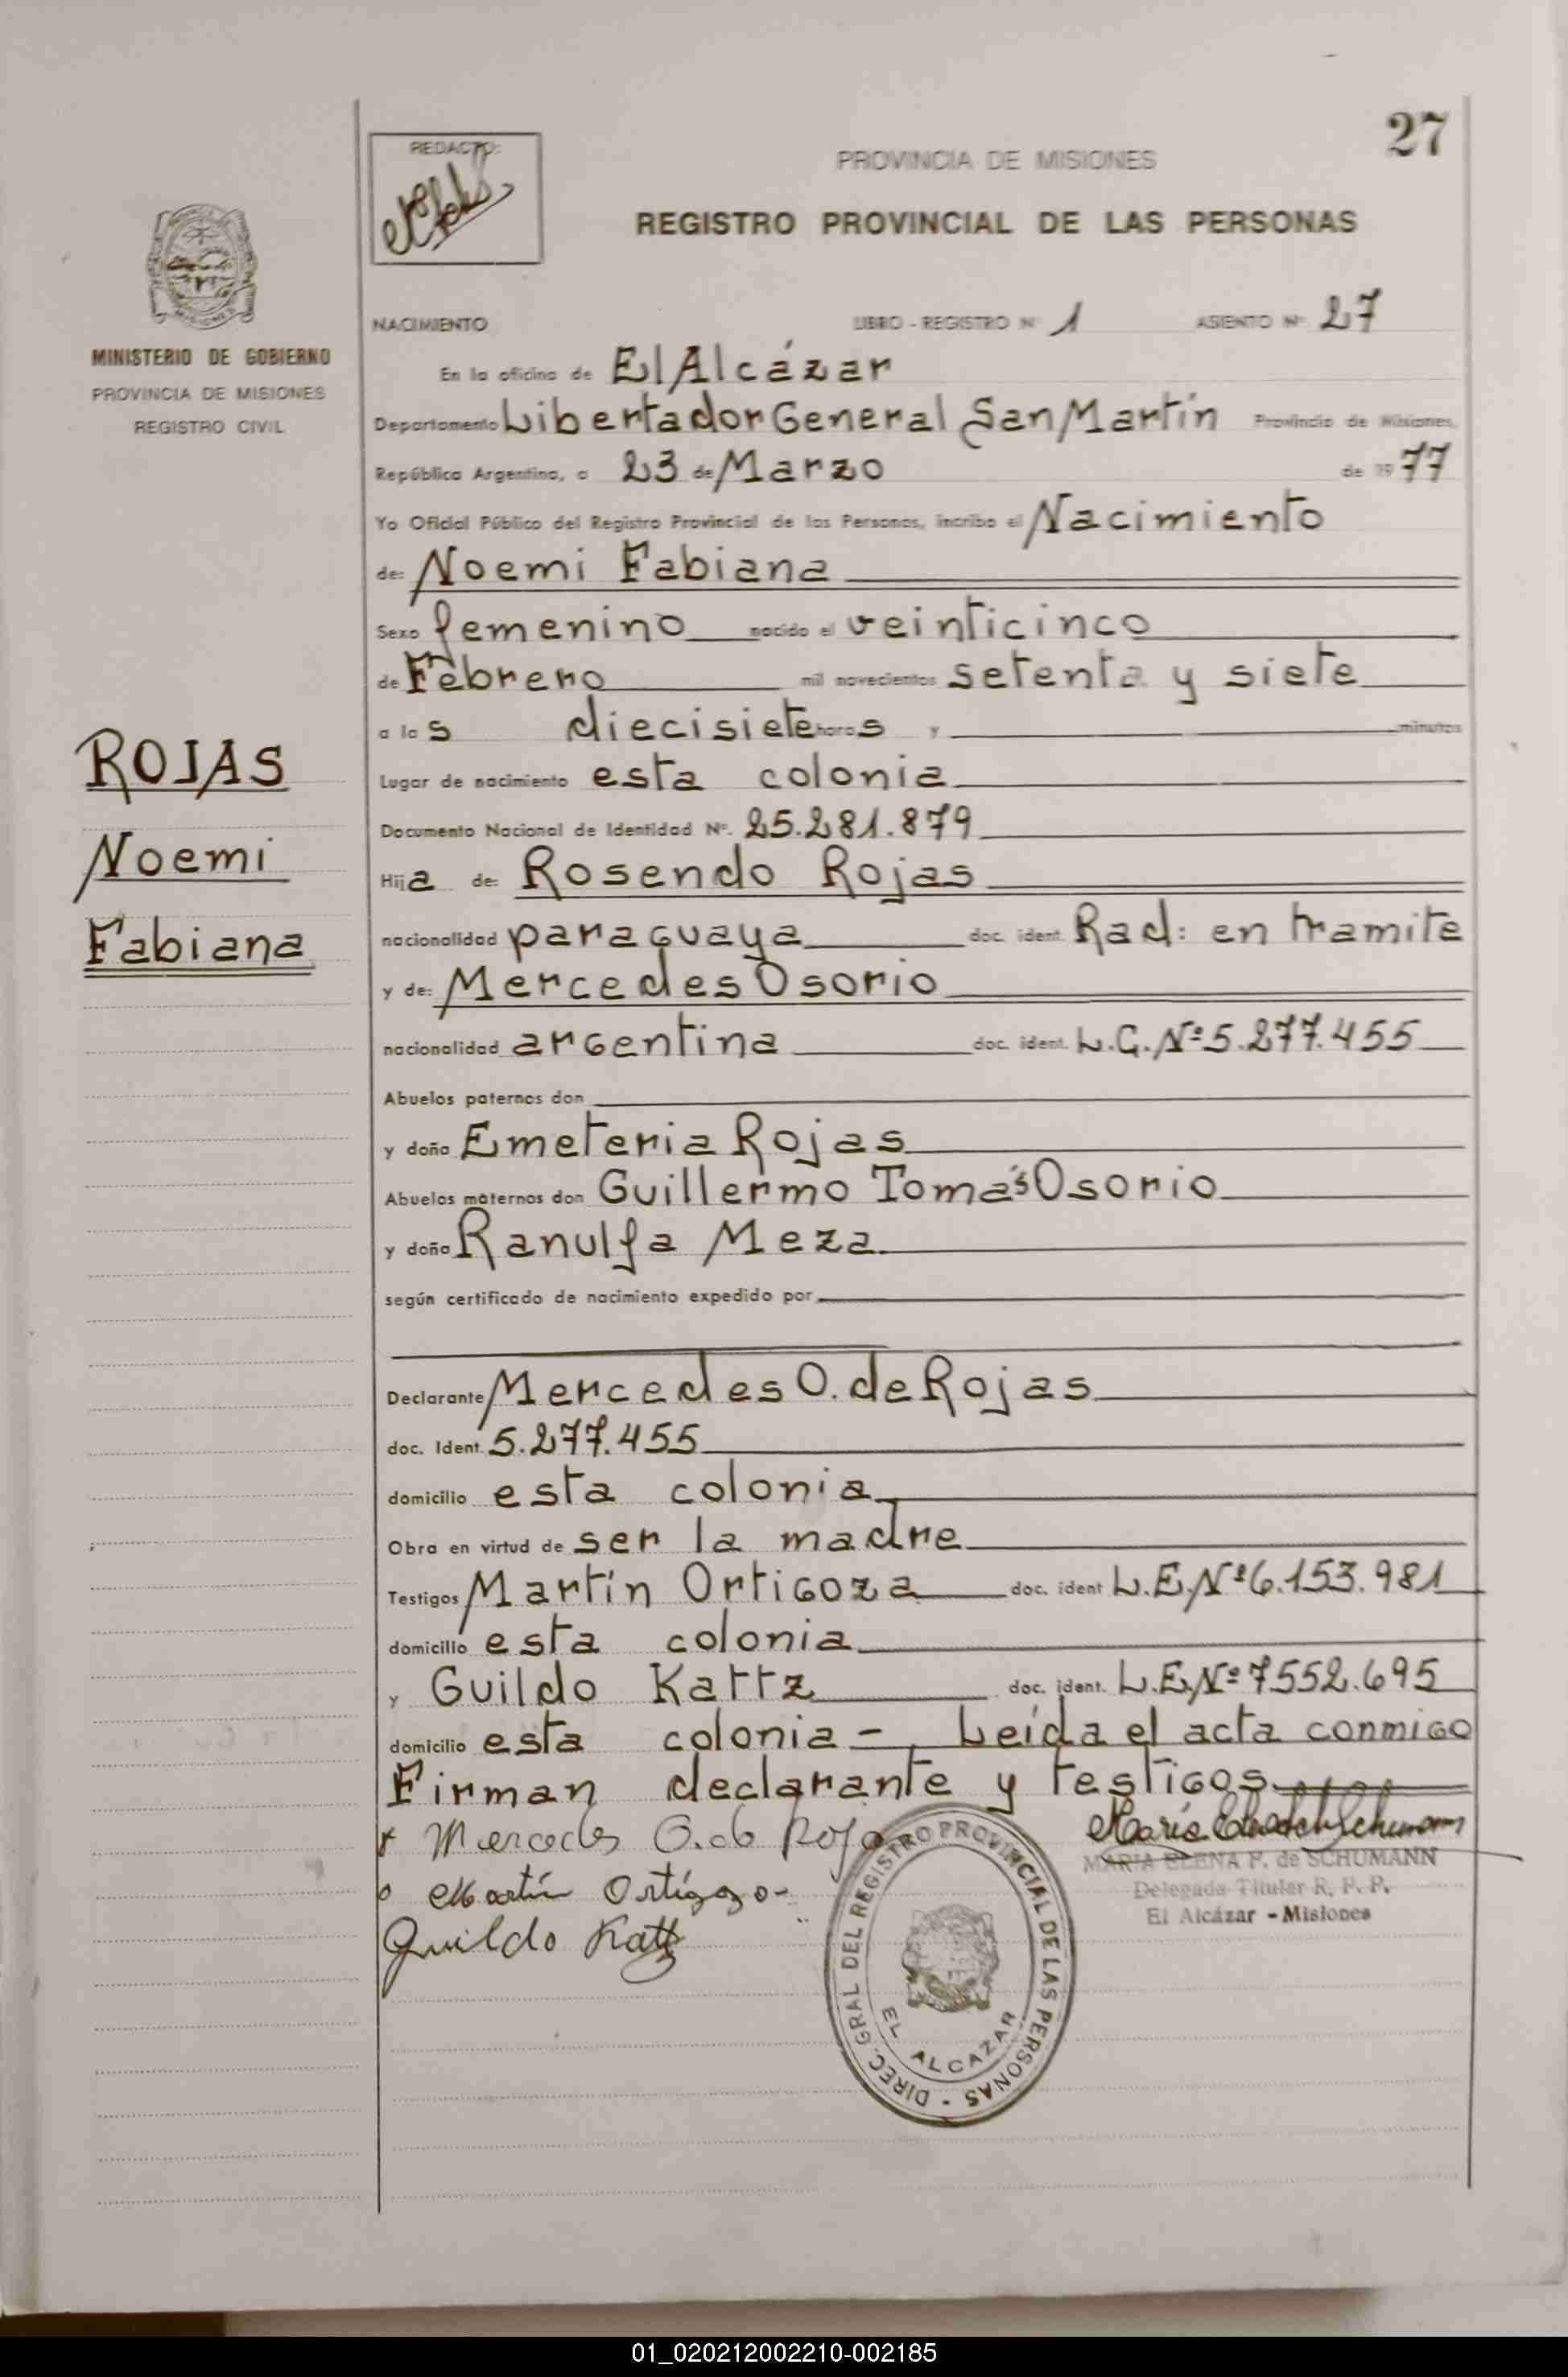 27
REDACTO:
PROVINCIA DE MISIONES
REGISTRO PROVINCIAL DE LAS PERSONAS
MISIONES
MINISTERIO DE GOBIERNO
PROVINCIA DE MISIONES
REGISTRO CIVIL
ROJAS
Noemi
Fabiana
NACIMIENTO LIBRO - REGISTRO Nº 1 ASIENTO Nº 27
En la oficina de El Alcázar
Departamento Libertador General San Martín Provincia de Misiones,
República Argentina, a 23 de Marzo de 1977
Yo Oficial Público del Registro Provincial de las Personas, incribo el Nacimiento
de: Noemi Fabiana
Sexo femenino nacido el veinticinco
de Febrero mil novecientos setenta y siete
a las diecisiete horas y minutos
Lugar de nacimiento esta colonia
Documento Nacional de Identidad Nº. 25.281.879
Hija de: Rosendo Rojas
nacionalidad paraguaya doc. ident. Rad: en tramite
y de: Mercedes Osorio
nacionalidad argentina doc. ident. L.C. Nº 5.277.455
Abuelos paternos don
y doña Emeteria Rojas
Abuelos maternos don Guillermo Tomás Osorio
y doña Ranulfa Meza
según certificado de nacimiento expedido por
Declarante Mercedes O. de Rojas
doc. Ident. 5.277.455
domicilio esta colonia
Obra en virtud de ser la madre
Testigos Martín Ortigoza doc. ident L.E. Nº 6.153.981
domicilio esta colonia
y Guildo Kattz doc. ident. L.E. Nº 7552.695
domicilio esta colonia - Leída el acta conmigo
Firman declarante y testigos
Mercedes O. de Rojas
Martín Ortigozo-
Guildo Kattz
MARIA ELENA P. de SCHUMANN
Delegada Titular R. P. P.
El Alcázar - Misiones
DIREC. GRAL DEL REGISTRO PROVINCIAL DE LAS PERSONAS -
EL ALCAZAR
01_020212002210-002185